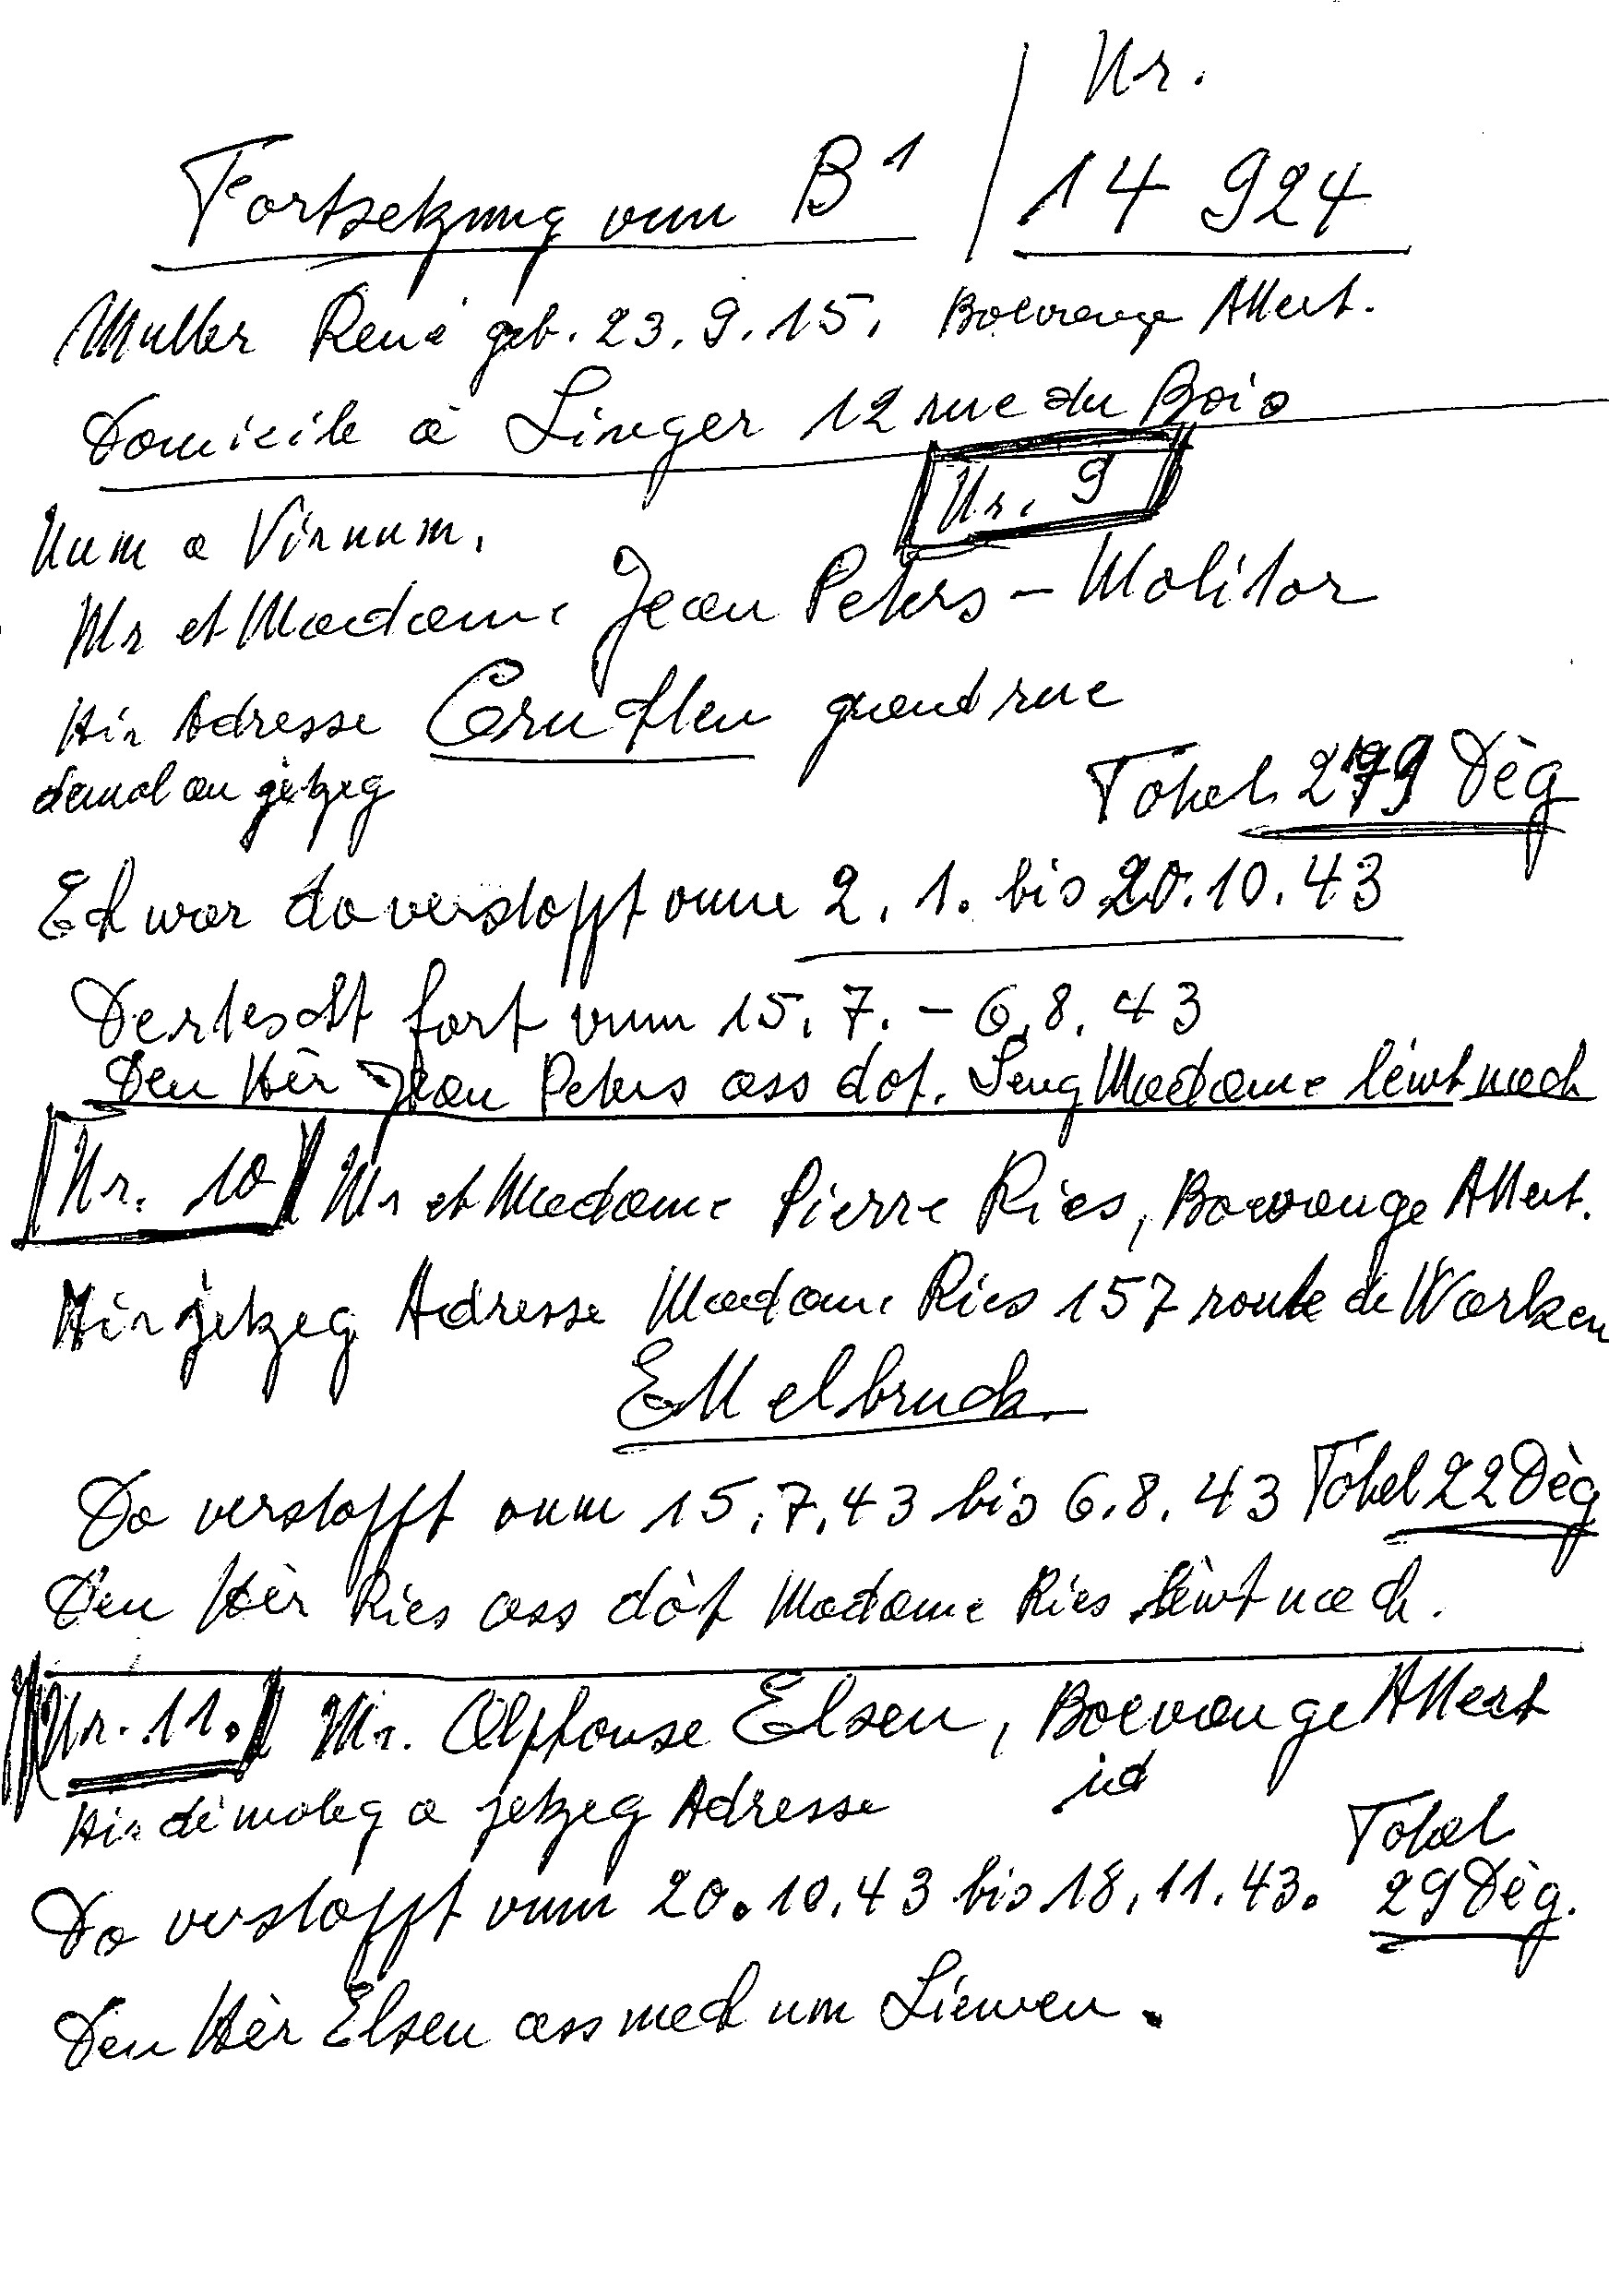 Nr.
Fortsetzung vum B1 / 14 924
Muller René geb. 23.9.15. Boevange Attert.
Domicile à Linger 12 rue du Bois
Nr. 9
Num a Virnum.
Mr et Madame Jean Peters - Molitor
Hir Adresse Cruchten grand rue
demol an jetzeg
Total 279 Dèg
Ech wor do verstoppt vum 2. 1. bis 20.10.43
Dertescht fort vum 15.7. - 6.8.43
Den Hèr Jean Peters ass dot. Seng Madame lèwt nach
Nr. 10 Mr et Madame Pierre Ries, Boevange Attert.
Hir jetzeg Adresse Madame Ries 157 route de Warken
Ettelbruck.
Do verstoppt vum 15.7.43 bis 6.8.43 Total 22 Dèg
Den Hèr Ries ass dòt Madame Ries lèwt nach.
Nr. 11. Mr. Alphonse Elsen, Boevange Attert
Hir dèmoleg a jetzeg Adresse id
Total
Do verstoppt vum 20.10.43 bis 18.11.43. 29 Dèg.
Den Hèr Elsen ass nach um Liewen.